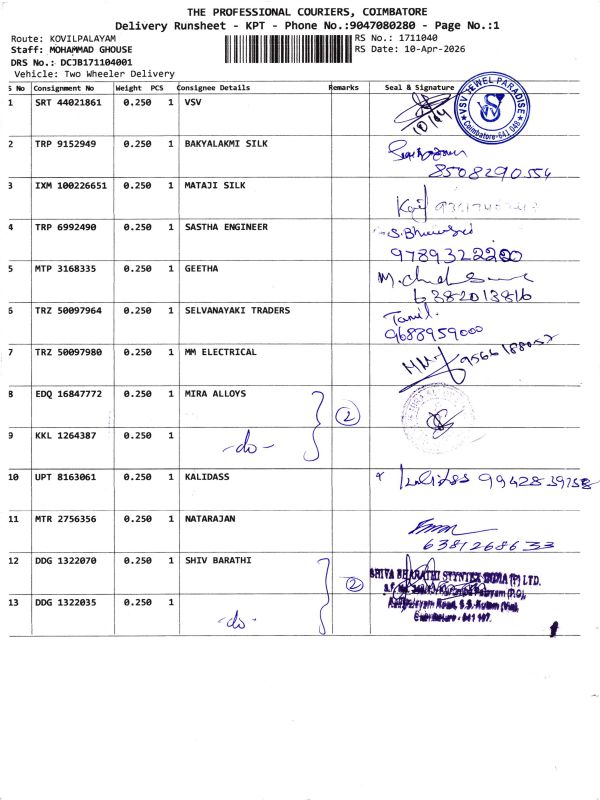 THE PROFESSIONAL COURIERS, COIMBATORE
Delivery Runsheet - KPT - Phone No.:9047080280 - Page No.:1
Route: KOVILPALAYAM
Staff: MOHAMMAD GHOUSE
DRS No.: DCJB171104001
Vehicle: Two Wheeler Delivery
RS No.: 1711040
RS Date: 10-Apr-2026
S No Consignment No Weight PCS Consignee Details Remarks Seal & Signature
1 SRT 44021861 0.250 1 VSV 10/04
VSV JEWEL PARADISE
VSV
Coimbatore-641 048
2 TRP 9152949 0.250 1 BAKYALAKMI SILK
8508290554
3 IXM 100226651 0.250 1 MATAJI SILK
4 TRP 6992490 0.250 1 SASTHA ENGINEER
9789322200
5 MTP 3168335 0.250 1 GEETHA
6382013816
6 TRZ 50097964 0.250 1 SELVANAYAKI TRADERS Tamil.
9688959000
7 TRZ 50097980 0.250 1 MM ELECTRICAL
8 EDQ 16847772 0.250 1 MIRA ALLOYS 2
9 KKL 1264387 0.250 1 -do-
10 UPT 8163061 0.250 1 KALIDASS Kalidass 9942839758
11 MTR 2756356 0.250 1 NATARAJAN
6381268633
12 DDG 1322070 0.250 1 SHIV BARATHI 2
SHIVA BHARATHI SYNTEX INDIA (P) LTD.
13 DDG 1322035 0.250 1 -do-
Coimbatore - 641 107.